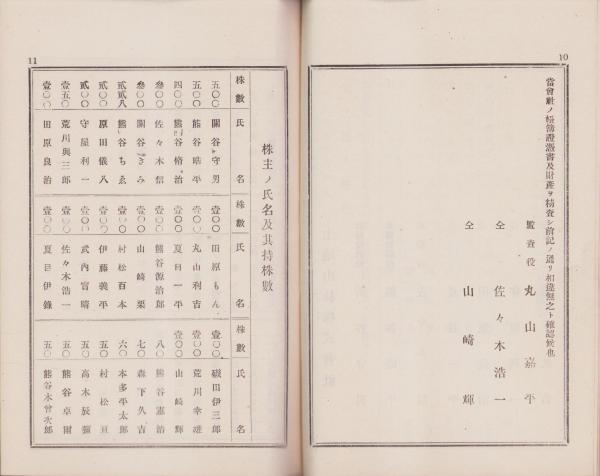 10
當會社ノ帳簿證憑書及財產ヲ精査シ前記ノ通リ相違無之ト確認候也
監査役 丸山嘉平
仝 佐々木浩一
仝 山崎輝
11
株主ノ氏名及其持株數
株數 氏名
五〇〇 關谷守男
五〇〇 熊谷晧平
四〇〇 熊谷脩治
參〇〇 佐々木信
參〇〇 關谷きみ
貳貳八 熊谷ちゑ
貳〇〇 原田儀八
貳〇〇 守屋利一
壹五〇 荒川與三郎
壹〇〇 田原良治
株數 氏名
壹〇〇 田原もん
壹〇〇 丸山利吉
壹〇〇 夏目一平
壹〇〇 熊谷源治郎
壹〇〇 山崎栗
壹〇〇 村松百本
壹〇〇 伊藤義平
壹〇〇 武內富晴
壹〇〇 佐々木浩一
壹〇〇 夏目伊錄
株數 氏名
壹〇〇 磯田伊三郎
壹〇〇 荒川幸雄
壹〇〇 山崎輝
八〇 熊谷憲治
七〇 森下久吉
六〇 本多平太郎
五〇 村松亘
五〇 高木辰彌
五〇 熊谷卓爾
五〇 熊谷木曾次郎